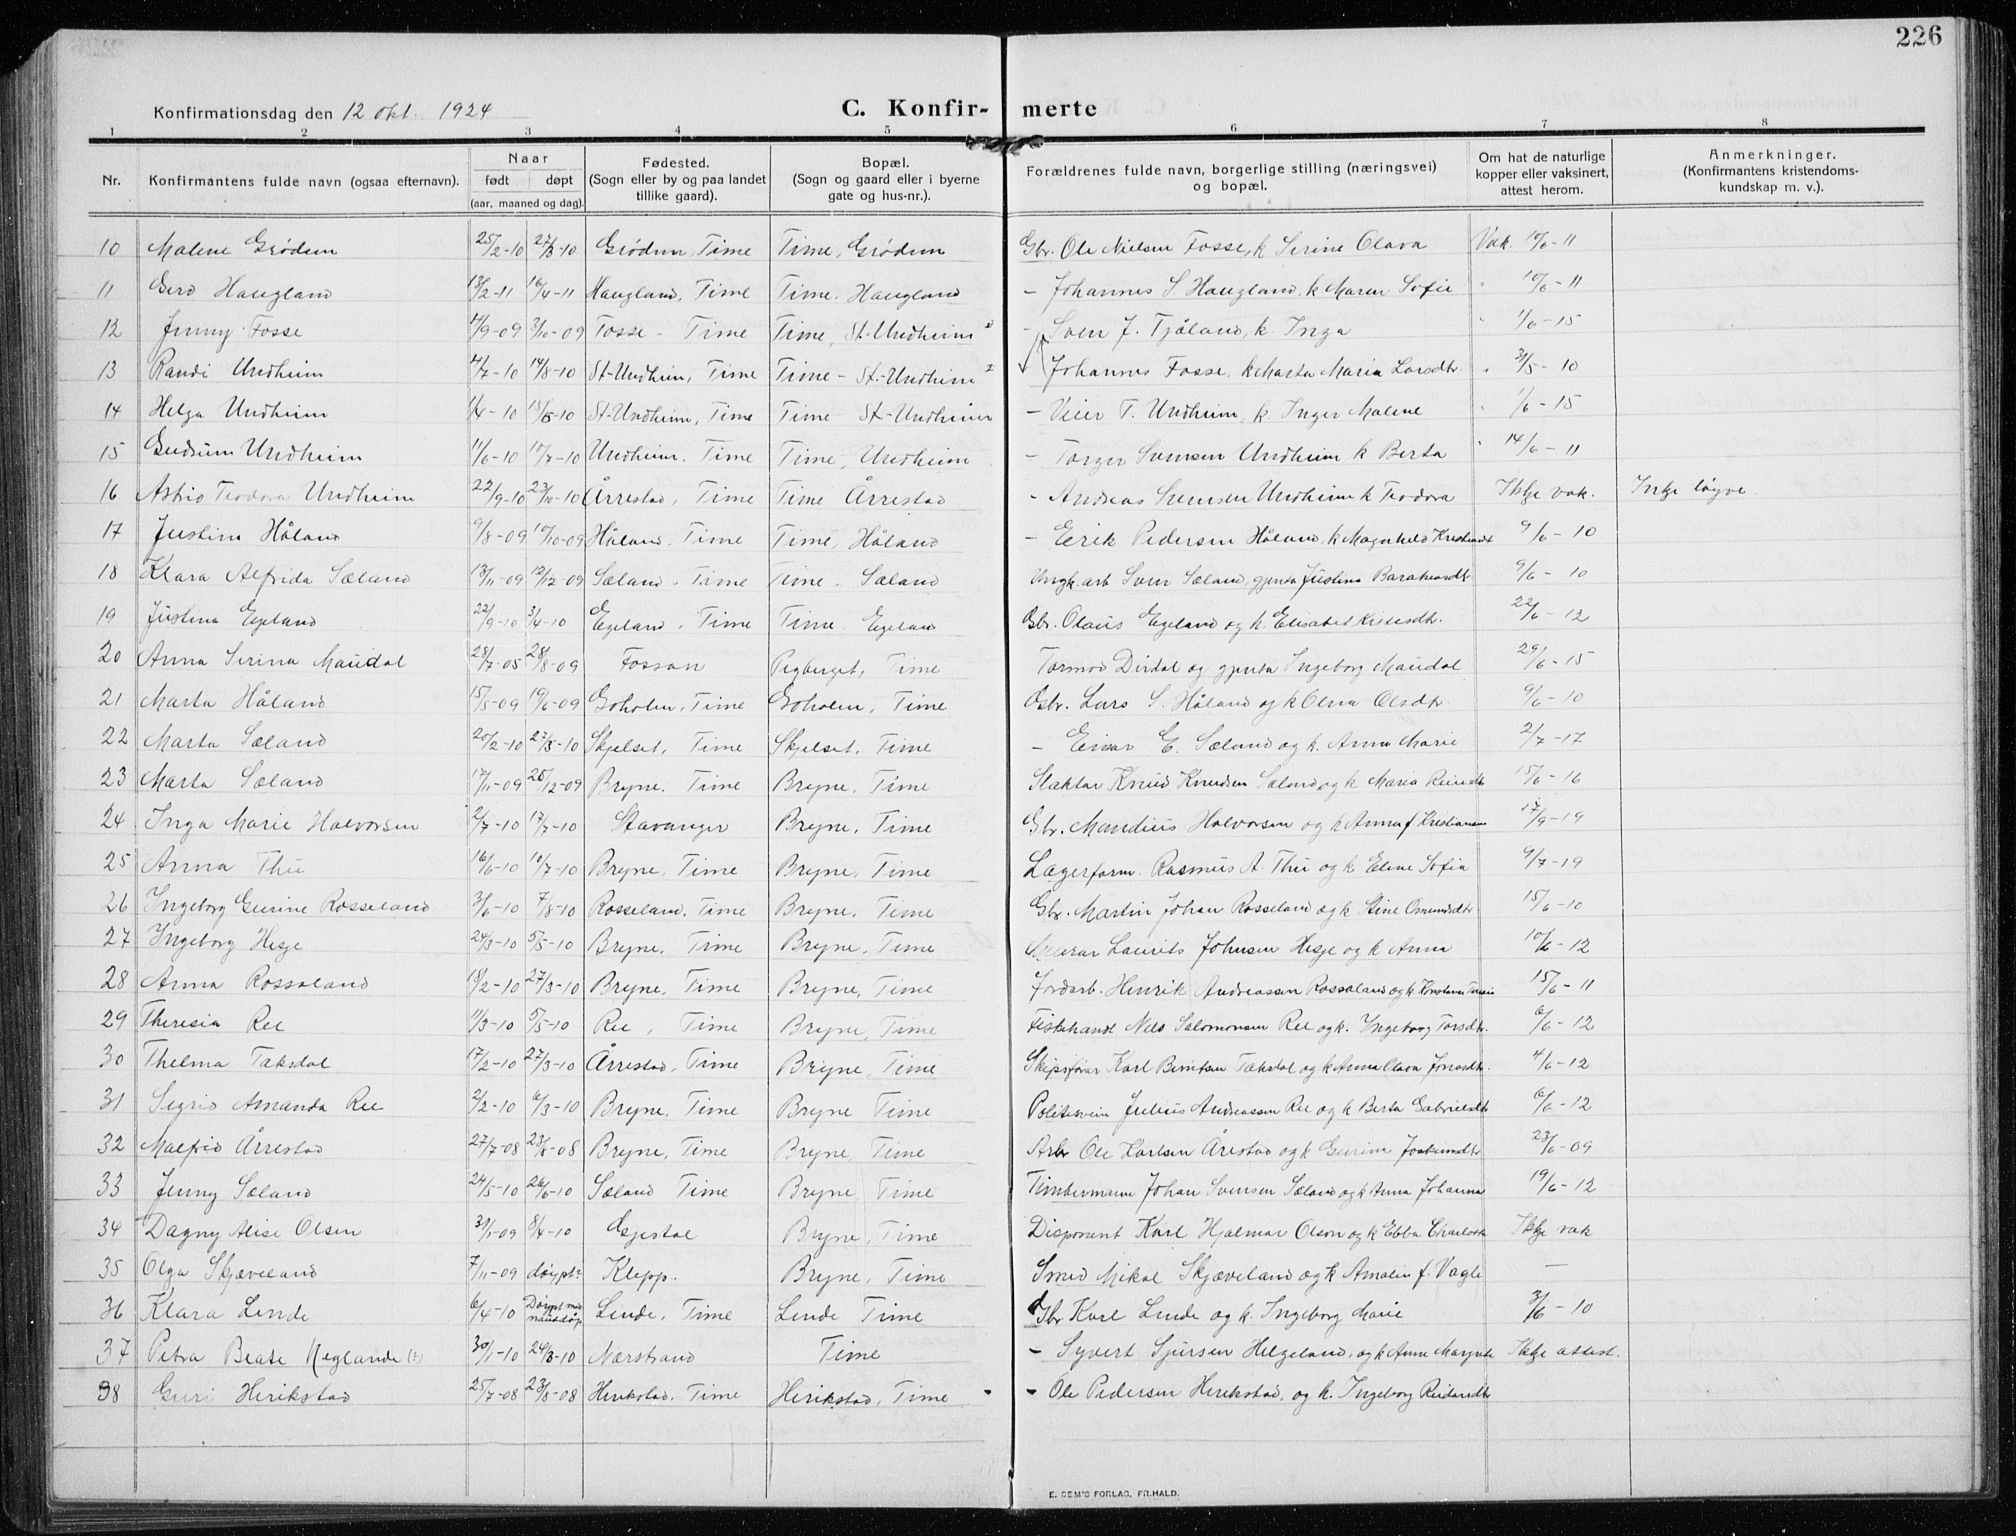 226
Konfirmationsdag den 12 okt. 1924 C. Konfir- merte
1 2 3 4 5 6 7 8
Nr. Konfirmantens fulde navn (ogsaa efternavn). Naar født døpt (aar, maaned og dag). Fødested. (Sogn eller by og paa landet tillike gaard). Bopæl. (Sogn og gaard eller i byerne gate og hus-nr.). Forældrenes fulde navn, borgerlige stilling (næringsvei) og bopæl. Om hat de naturlige kopper eller vaksinert, attest herom. Anmerkninger. (Konfirmantens kristendoms- kundskap m. v.).
10 Malene Grødem 25/2-10 27/3-10 Grødem, Time Time, Grødem Gbr. Ole Nielsen Fosse, k Serine Olava Vak. 10/6-11
11 Gerd Haugland 13/2-11 16/4-11 Haugland, Time Time. Haugland - Johannes S. Haugland, k Maren Sofie 10/6-11
12 Jenny Fosse 11/9-09 3/10-09 Fosse - Time Time, St-Undheim - Sven J. Tjåland, k. Inga 1/6-15
13 Randi Undheim 4/7-10 14/8-10 St-Undheim, Time Time - St-Undheim Johannes Fosse, k Marta Maria Larsdtr. 31/5-10
14 Helga Undheim 1/4-10 15/5-10 St-Undheim, Time Time St-Undheim - Veier T. Undheim, k. Inger Malene 1/6-15
15 Gudrum Undheim 11/6-10 17/7-10 Undheim, Time Time, Undheim - Torger Svensen Undheim k Berta 14/6-11
16 Astrid Teodora Undheim 22/9-10 23/10-10 Årrestad, Time Time Årrestad - Andreas Svensen Undheim k Teodora Ikkje vak. Inkje løyve
17 Justina Håland 9/8-09 10/10-09 Håland, Time Time, Håland - Eirik Pedersen Håland, k Magnhild Kristiansdt 9/6-10
18 Klara Alfrida Sæland 13/11-09 12/12-09 Sæland - Time Time - Sæland Ungk. arb Sven Sæland, gjenta Justina Barakiasdtr 9/6-10
19 Justina Egeland 22/9-10 3/4-10 Egeland, Time Time, Egeland Gbr. Olaus Egeland og k. Elisabet 22/6-12
20 Anna Serina Maudal 28/7-05 28/8-09 Fossan Pigberget, Time Tormod Dirdal og gjenta Ingeborg Maudal 29/6-15
21 Marta Håland 15/5-09 19/6-09 Goholen, Time Goholen, Time Gbr. Lars S. Håland og k Olena Olsdtr 9/6-10
22 Marta Sæland 20/2-10 27/3-10 Skjelset, Time Skjelset, Time - Einar E. Sæland og k. Anna Marie 2/7-17
23 Marta Sæland 17/11-09 25/12-09 Bryne, Time Bryne, Time Slaktar Knud Knudsen Sæland og k Maria 15/6-16
24 Inga Marie Halvorsen 2/7-10 17/7-10 Stavanger Bryne, Time Gbr. Mandius Halvorsen og k Anna f Kristiansen 17/9-19
25 Anna Thu 16/6-10 10/7-10 Bryne, Time Bryne, Time Lagerform. Rasmus A. Thu og k Eline Sofia 9/7-19
26 Ingeborg Gurine Rosseland 3/6-10 7/8-10 Rosseland, Time Bryne, Time Gbr. Martin Johan Rosseland og k Stine Omundsdtr 15/6-10
27 Ingeborg Hesje 24/3-10 5/5-10 Bryne, Time Bryne, Time Laurits Johnsen Hesje og k Anna 10/6-12
28 Anna Rossaland 18/2-10 27/3-10 Bryne, Time Bryne, Time Jordarb. Henrik Andreassen Rossaland og k Konstanse Teresia 15/6-11
29 Theresia Ree 11/3-10 5/5-10 Ree, Time Bryne, Time Fiskehandl Nils Salomonsen Ree og k. Ingeborg Torsdtr. 6/6-12
30 Thelma Taksdal 17/2-10 27/3-10 Årrestad, Time Bryne, Time Skipsførar Karl Berntsen Taksdal og k Anna Olava Jonasdtr. 4/6-12
31 Sigrid Amanda Ree 2/2-10 6/3-10 Bryne, Time Bryne Time Politisvein Julius Andreassen Ree og k Berta Gabrielsdtr 6/6-12
32 Malfrid Årrestad 27/7-08 23/8-08 Bryne, Time Bryne, Time Arb Ole Karlsen Årestad og k Gurina 23/6-09
33 Jenny Sæland 24/5-10 26/6-10 Sæland Time Bryne Time Timbermann Johan Svensen Sæland og k Anna Johanna 19/6-12
34 Dagny Alise Olsen 31/1-09 8/4-10 Gjestal Bryne, Time Disponent Karl Hjalmar Olson og k Ebba Charlotta Ikkje vak
35 Olga Skjæveland 7/11-09 døypt? Klepp. Bryne, Time Smed Mikal Skjæveland og k Amalie f. Vagle —
36 Klara Linde 6/4-10 Døypt med naudedåp Linde, Time Linde Time Gbr. Karl Linde og k. Ingeborg Marie 3/6-10
37 Petra Beate Neglande (?) 30/1-10 24/3-10 Nærstrand Time - Syvert Sjursen Helgeland, og k Anne Margrete Ikkje attest.
38 Guri Herikstad 25/7-08 23/8-08 Herikstad, Time Herikstad, Time - Ole Pedersen Herikstad, og k. Ingeborg Reidarsdtr
E. SEM'S FORLAG, FR.HALD.